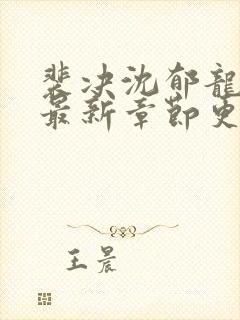 裴决沈郁龍
最新章節更
王晨